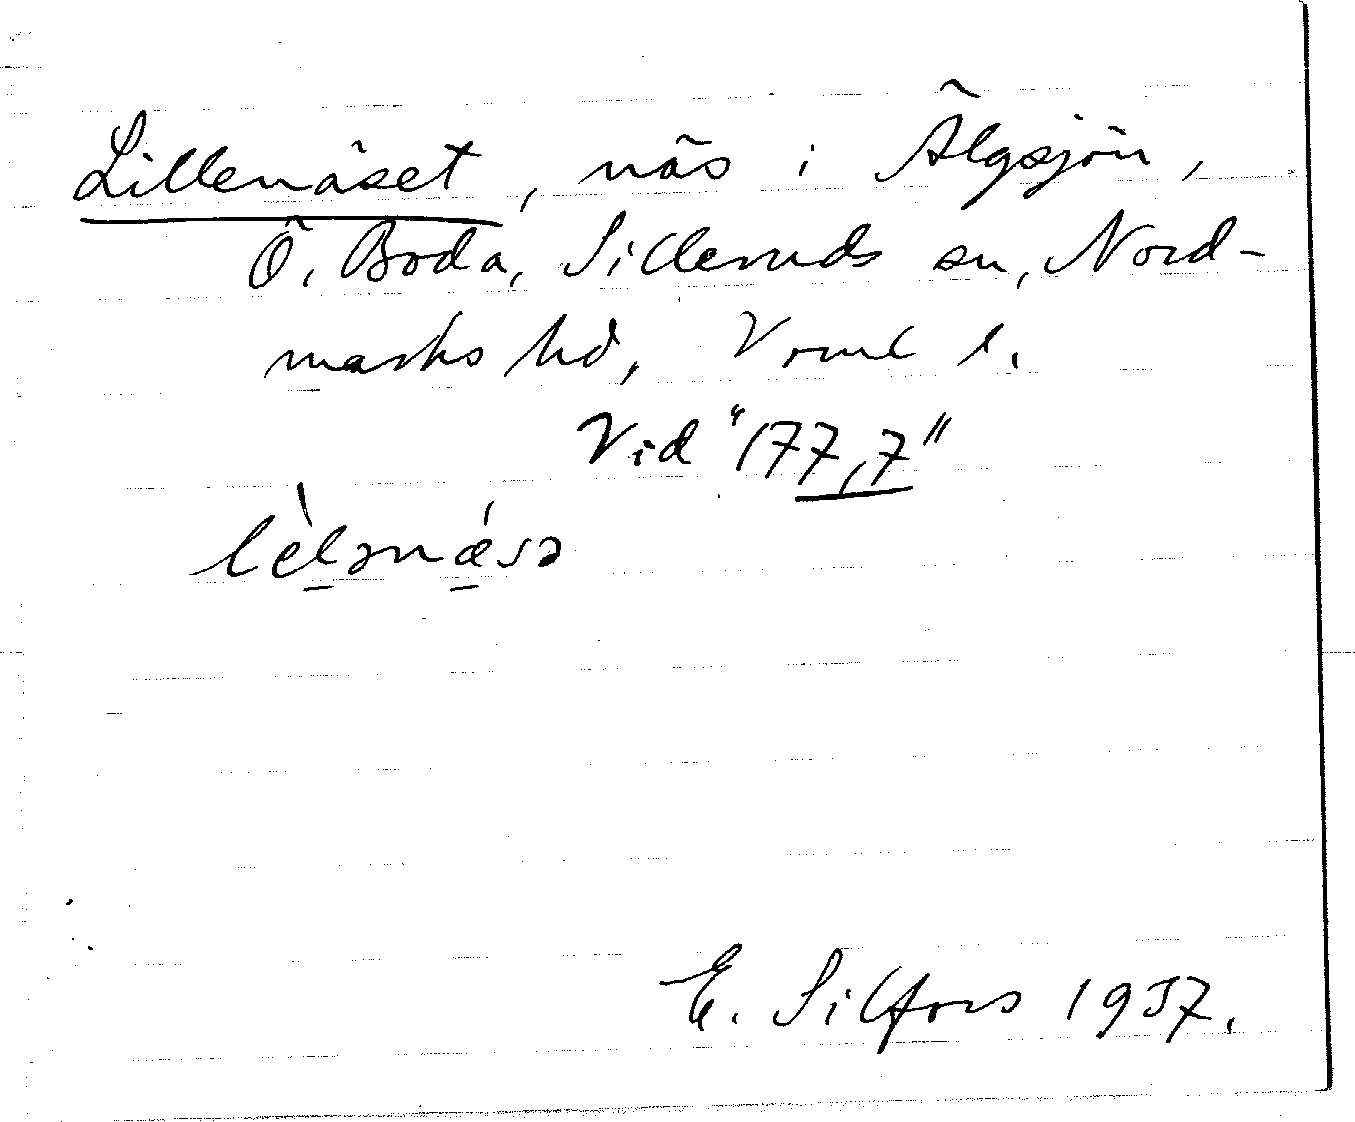 Lillenäset, näs i Älgsjön,
Ö. Boda, Silleruds sn, Nord-
marks hd, Vrml l.
Vid "177,7"
lèlənǽsə
E. Silfors 1937.